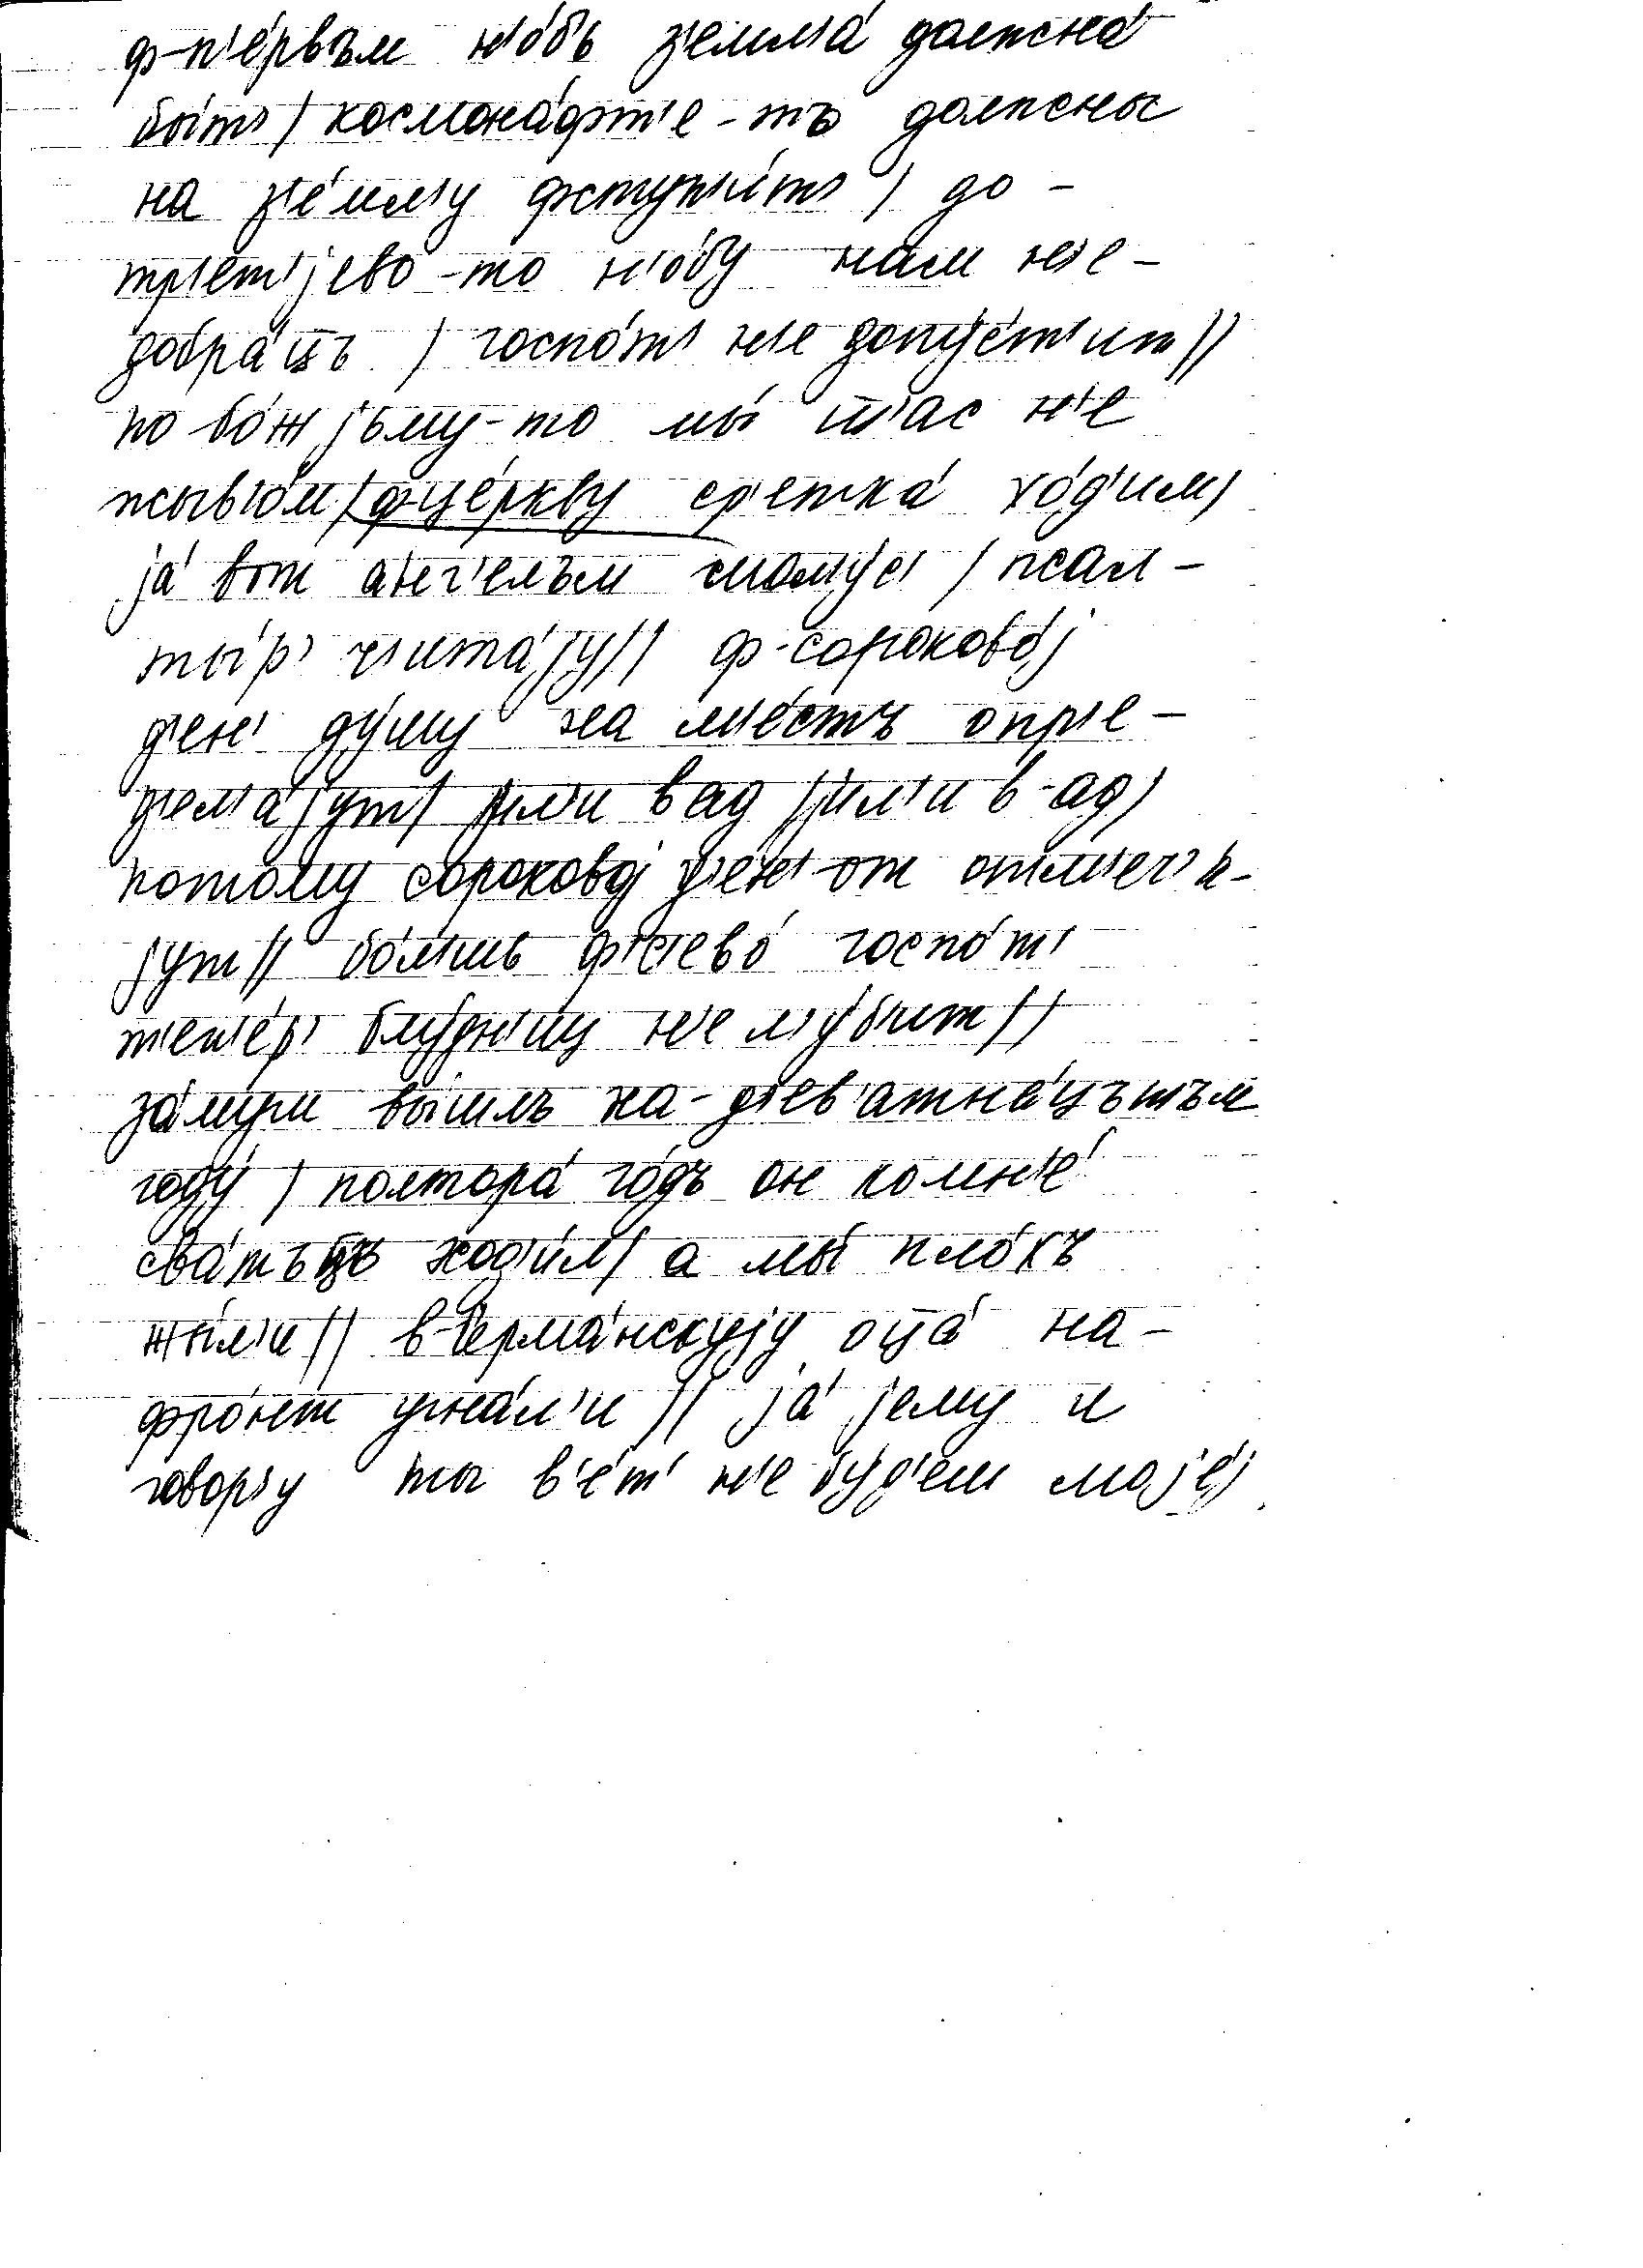 ф-п'е́рвъм н'о́бъ з'емл'а́ должна́
бы́т' / космона́фт'е-тъ должны
на з'е́мл'у фступ'и́т' / до-
тр'ет'јево-то н'о́бу нам н'е-
добра́цъ / госпо́т' н'е допу́ст'ит //
по бо́жјьму-то мы́ т'ас н'е
жыв'о́м / ф-це́ркву ср'етка́ хо́д'им /
ја́ вот а́нг'елъм мол'у́с' / псал-
ты́р' ч'ита́ју // ф-сороково́ј
д'ен' ду́шу на м'е́стъ опр'е-
д'ел'а́јут / ил'и в ад / ил'и в-ад /
потому сороковој д'ен'-от отм'еч'а-
јут // бо́л'шь фс'ево́ госпо́т'
т'еп'е́р' блу́дн'ицу н'е л'у́б'ит //
за́муш вы́шлъ на-д'ев'атна́цътъм
году́ / полтора́ го́дъ он ко мн'е́
сва́тъцъ ход'и́л / а мы́ пло́хъ
жы́л'и // в-г'ерма́нскују оца́ на-
фро́нт угна́л'и // ја́ јему и
говор'у ты в'е́т' н'е бу́д'еш мoје́ј